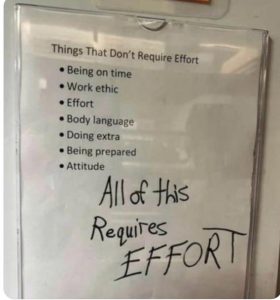 Things That Don't Require Effort
• Being on time
• Work ethic
• Effort
• Body language
• Doing extra
• Being prepared
• Attitude
All of this
Requires
EFFORT